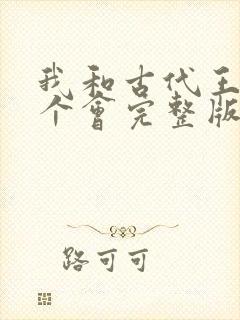 我和古代王
个會完整版
路可可